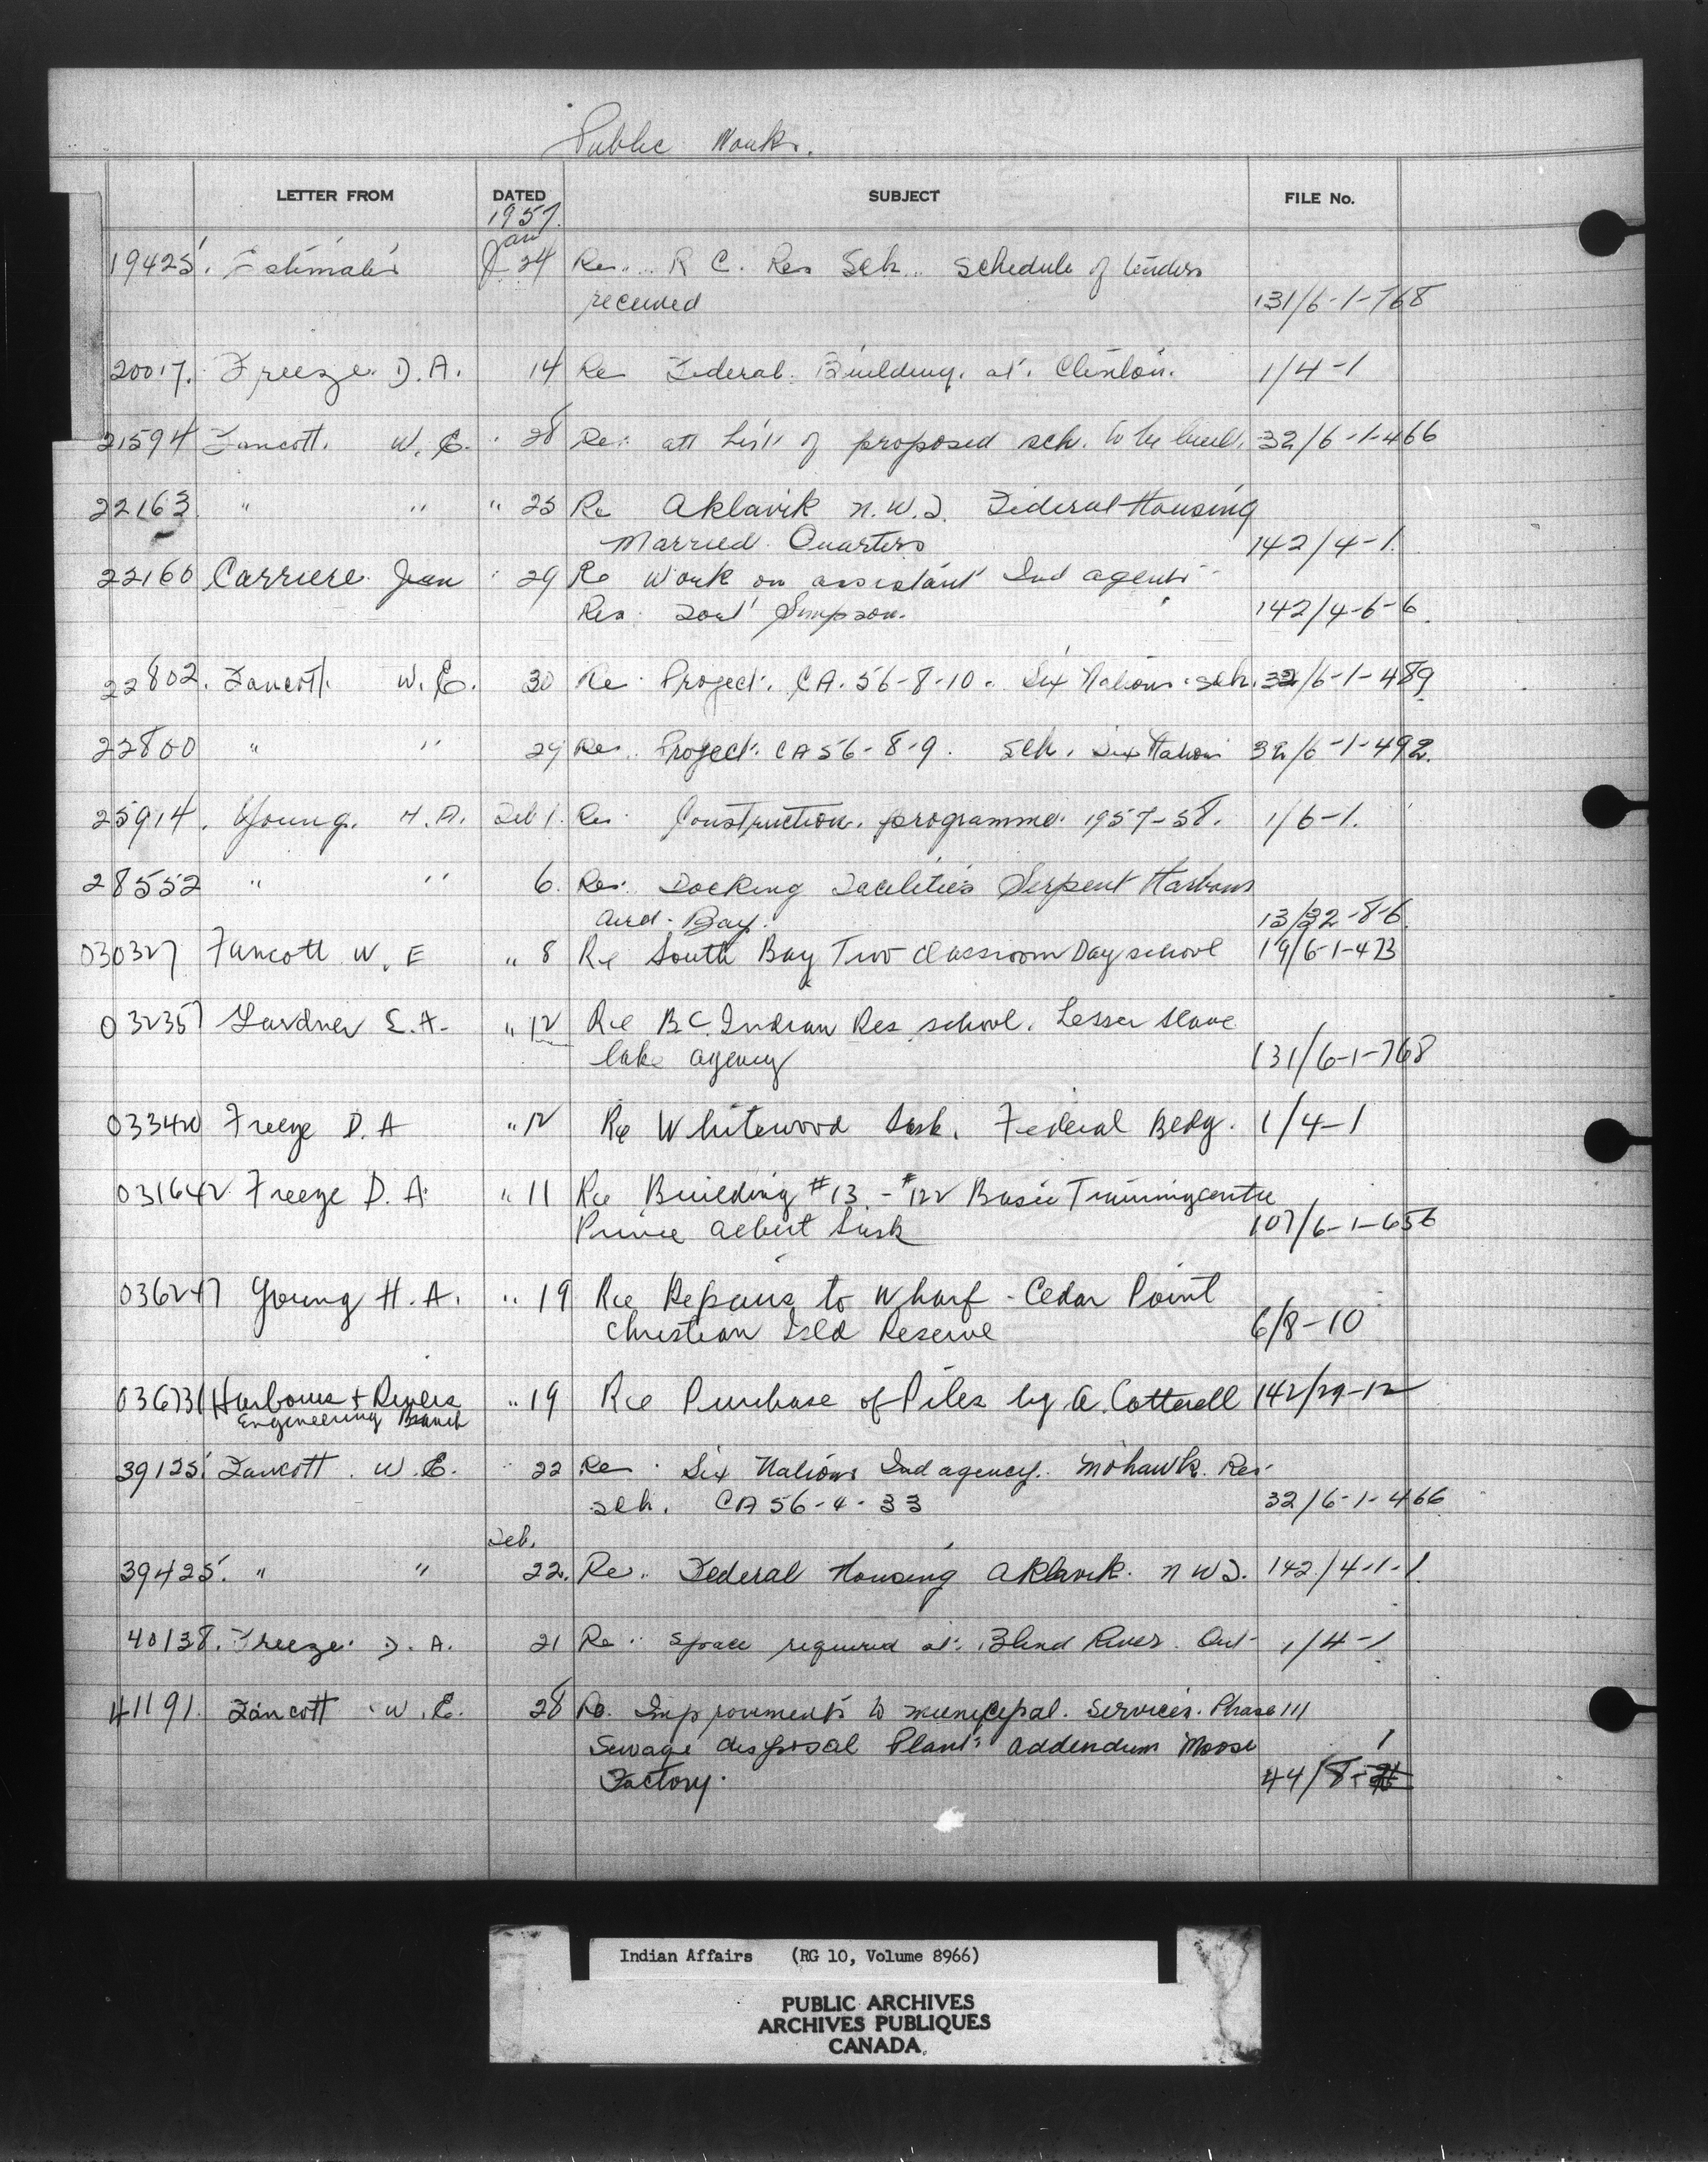 Public Works.
LETTER FROM DATED SUBJECT FILE No.
1957.
Jan
19425. Estimates 24 Re... R C. Res Sch.. Schedule of tenders
received 131/6-1-768
20017. Freeze. D.A. 14 Re Federal. Building. at. Clinton. 1/4-1
21594 Fancott. W.E. 28 Re: att List of proposed sch. to be built. 32/6-1-466
22163 " " " 25 Re Aklavik N.W.T. Federal Housing
Married Quarters 142/4-1.
22160 Carriere Jean 29 Re Work on assistant Ind agents
Res. Fort Simpson. 142/4-6-6.
22802. Fancott. W.E. 30 Re Project. CA. 56-8-10. Six Nations sch. 32/6-1-489
22800 " " 29 Re.. Project. CA 56-8-9. Sch. Six Nations 32/6-1-492.
25914. Young. H.A. Feb 1. Re. Construction. programme. 1957-58. 1/6-1.
28552 " " 6. Re: Docking Facilities Serpent Harbour
Aird. Bay. 13/22-8-6.
030327 Fancott W. E " 8 Re South Bay Two Classroom Day school 19/6-1-473
032357 Gardner E.A. " 12 Re BC. Indian Res school. Lesser Slave
lake agency 131/6-1-768
033420 Freeze D. A " 12 Re Whitewood Sask. Federal Bldg. 1/4-1
031642 Freeze D. A. " 11 Re Building #13 - #122 Basic Training centre
Prince Albert Sask 107/6-1-656
036247 Young H. A. " 19 Re Repairs to Wharf - Cedar Point
Christian Isld Reserve 6/8-10
036731 Harbours + Rivers " 19 Re Purchase of Piles by A. Cotterell 142/29-12
Engineering Branch
39125. Fancott. W.E. 22 Re. Six Nations Ind agency. Mohawk. Res.
sch. CA 56-4-33 32/6-1-466
Feb.
39425. " " 22. Re.. Federal Housing Aklavik. N W T. 142/4-1-1
40138. Freeze. D. A. 21 Re.. Space required at. Blind River. Ont- 1/4-1
41191. Fancott W.E. 28 Re. Improvements to municipal. Services. Phase III
Sewage disposal Plant. addendum Moose
Factory. 44/8-1
Indian Affairs (RG 10, Volume 8966)
PUBLIC ARCHIVES
ARCHIVES PUBLIQUES
CANADA